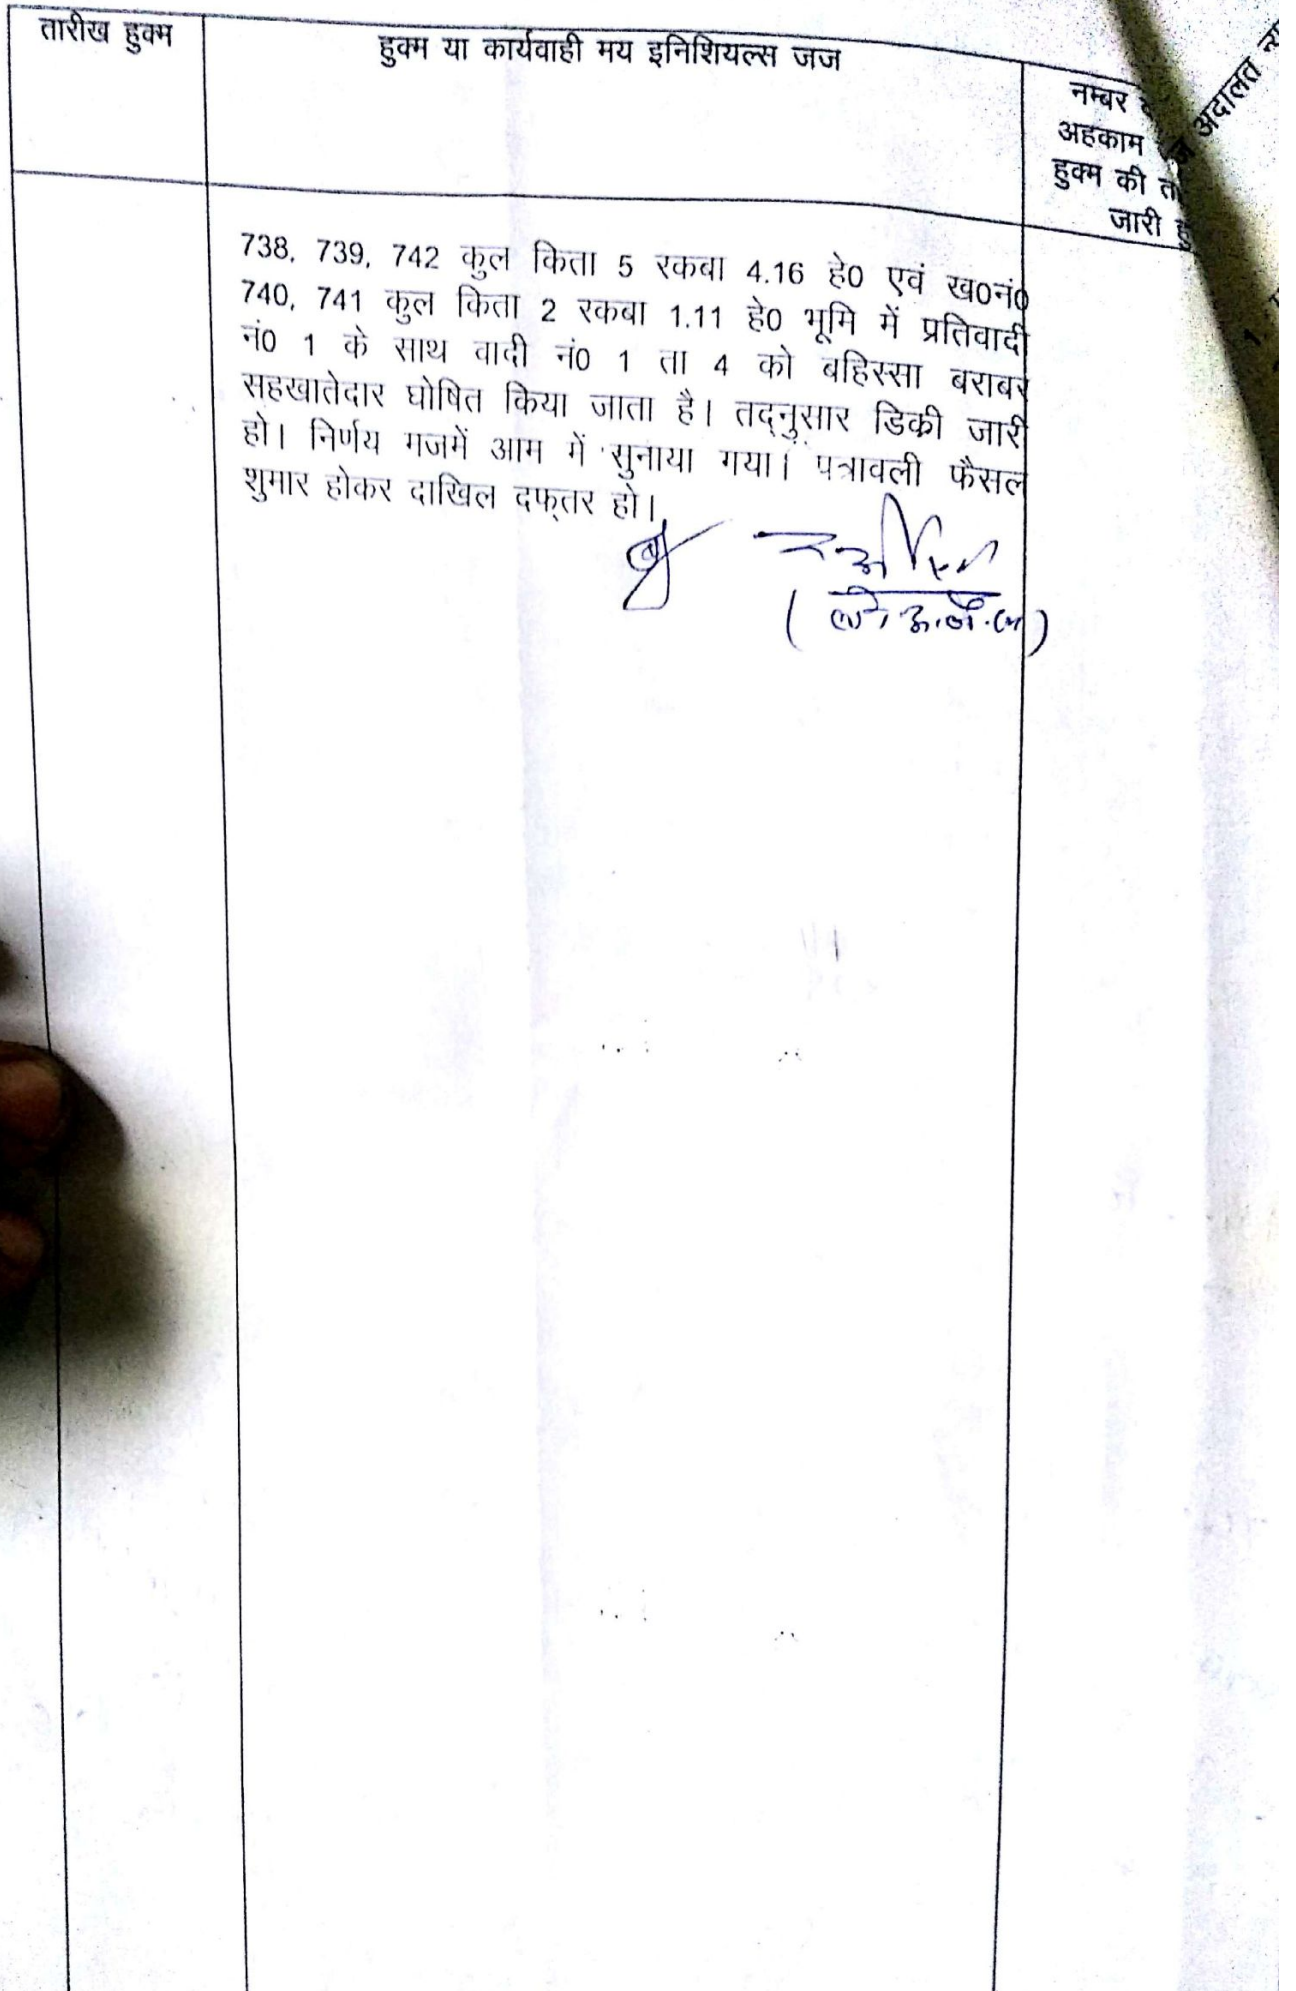 तारीख हुक्म
हुक्म या कार्यवाही मय इनिशियल्स जज
नम्बर
अहकाम
हुक्म की
जारी
अदालत
738, 739, 742 कुल किता 5 रकबा 4.16 हे0 एवं ख0नं0
740, 741 कुल किता 2 रकबा 1.11 हे0 भूमि में प्रतिवादी
नं0 1 के साथ वादी नं0 1 ता 4 को बहिस्सा बराबर
सहखातेदार घोषित किया जाता है। तद्नुसार डिक्री जारी
हो। निर्णय मजमें आम में सुनाया गया। पत्रावली फैसल
शुमार होकर दाखिल दफ्तर हो।